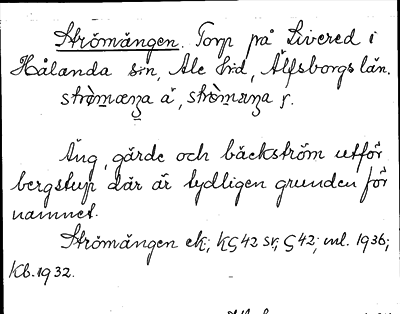 Strömängen. Torp på Livered i
Hålanda sn, Ale hrd, Älfsborgs län.
Äng, gärde och bäckström utför
bergstup där är tydligen grunden för
namnet.
Strömängen ek; KG 42 sr; G 42; ml. 1936;
Kb. 1932.